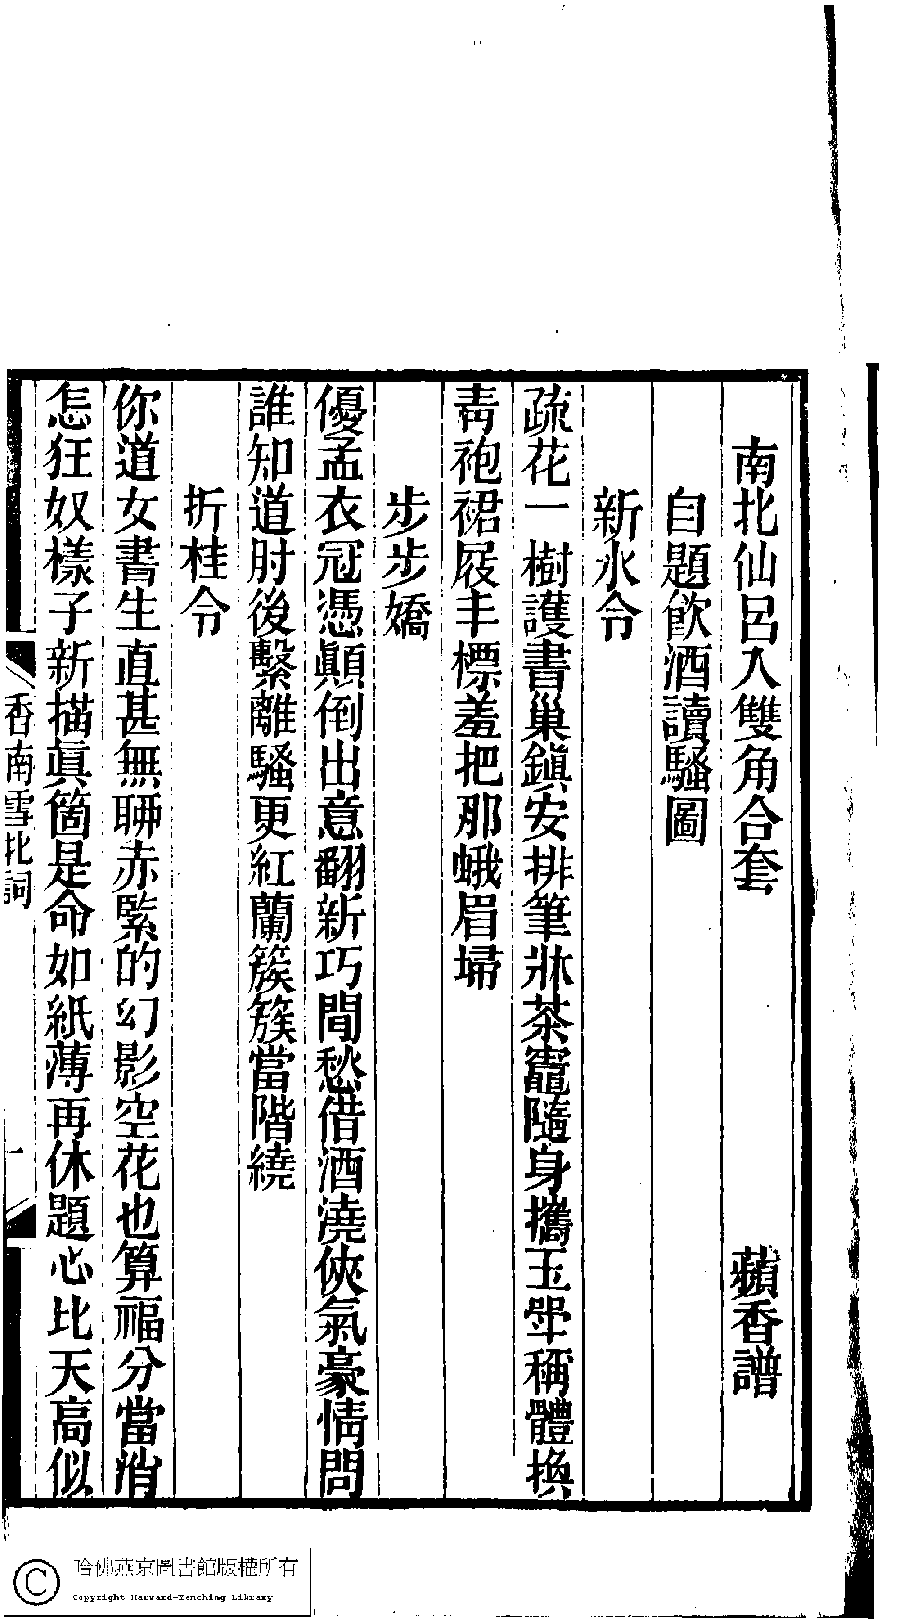 南北仙呂入雙角合套 蘋香譜
自題飮酒讀騷圖
新水令
疏花一樹護書巢鎭安排筆牀茶竈隨身攜玉斝稱體換
靑袍裙屐丰標羞把那蛾眉埽
步步嬌
優孟衣冠憑顚倒出意翻新巧間愁借酒澆俠氣豪情問
誰知道肘後繫離騷更紅蘭簇簇當階繞
折桂令
你道女書生直甚無聊赤緊的幻影空花也算福分當消
怎狂奴樣子新描眞箇是命如紙薄再休題心比天高似
香南雪北詞
一
哈佛燕京圖書館版權所有
Copyright Harvard-Yenching Library